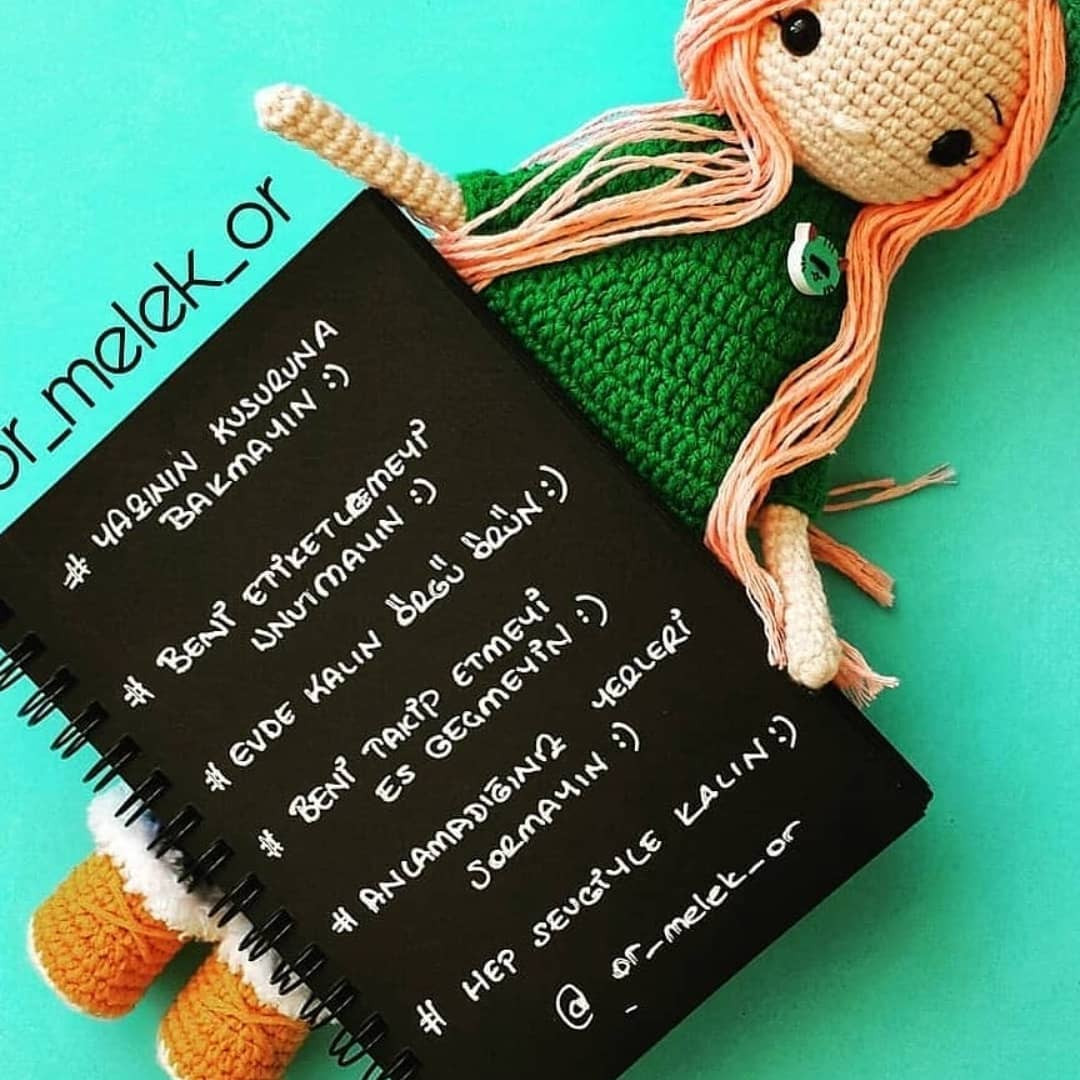 or_melek_or
# YAZININ KUSURUNA
BAKMAYIN :)
# BENİ ETİKETLEMEYİ
UNUTMAYIN :)
# EVDE KALIN ÖRGÜ ÖRÜN :)
# BENİ TAKİP ETMEYİ
ES GEÇMEYİN :)
# ANLAMADIĞINIZ YERLERİ
SORMAYIN :)
# HEP SEVGİYLE KALIN :)
@ or_melek_or